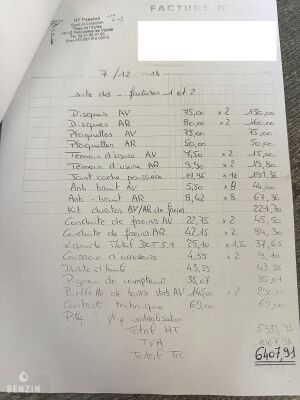 FACTURE N°
GT Passion
7/12 18
suite des factures 1 et 2
Disques AV 75,00 x 2 150,00
Disques AR 80,00 x 2 160,00
Plaquettes AV 75,00 75,00
Plaquettes AR 50,00 50,00
Témoin d'usure AV 7,50 x 2 15,00
Témoin d'usure AR 9,90 x 2 19,80
Joint cache poussière 11,96 x 16 191,36
Anti bruit AV 5,50 x 8 44,00
Anti-bruit AR 8,42 x 8 67,36
Kit durites AV/AR de freins
Conduite de freins AV 22,75 x 2 45,50
Conduite de freins AR 42,15 x 2 84,30
Liquide Total DOT 5.1 25,10 x 1,50 37,65
Courroie d'accessoire 4,55 x 2 9,10
43,55 43,55
Pignon de compteur 35,07 35,07
Biellette de barre stab AV 145,00 x 2 290,00
Contrôle technique 69,00 69,00
centralisation
Total HT
TVA
Total TTC 6407,91
BENZIN